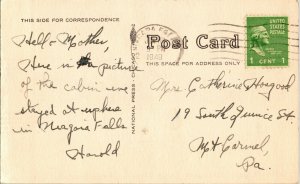 THIS SIDE FOR CORRESPONDENCE
Hello Mother
Here is a picture
of the cabin we
stayed at up here
in Niagara Falls.
Harold
NATIONAL PRESS
Post Card
THIS SPACE FOR ADDRESS ONLY
1948
UNITED STATES
POSTAGE
1 CENT 1
Mrs. Catherine
19 South Quince St.
Mt Carmel,
Pa.